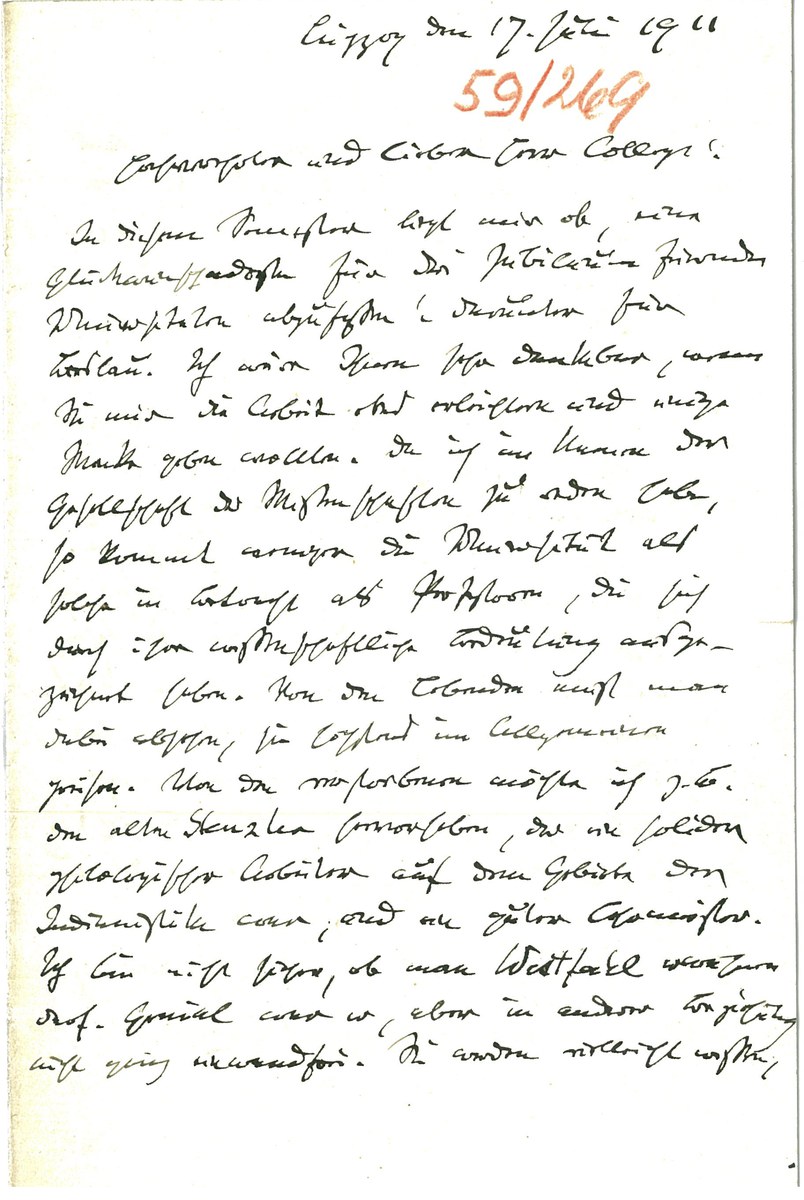 Leipzig den 17. Juli 1911
59/269
Hochverehrter und lieber Herr College!
In diesem Semester liegt mir ob, eine
Glückwunschadresse für das Jubiläum fremder
Universitäten abzufassen, darunter für
Breslau. Ich wäre Ihnen sehr dankbar, wenn
Sie mir die Arbeit etwas erleichtern und einige
Winke geben wollten. Da ich im Namen der
Gesellschaft der Wissenschaften zu reden habe,
so kommt weniger die Universität als
solche in Betracht als Professoren, die sich
durch ihre wissenschaftliche Bedeutung ausge-
zeichnet haben. Von den Lebenden muß man
dabei absehen, sie höchstens im Allgemeinen
preisen. Von den verstorbenen möchte ich z.B.
den alten Stenzler hervorheben, der ein solider
philologischer Arbeiter auf dem Gebiete der
Indianistik war, und ein guter Lehrmeister.
Ich bin nicht sicher, ob man Westfael erwähnen
darf. Genial war er, aber in anderer Beziehung
nicht ganz einwandfrei. Sie werden vielleicht wissen,